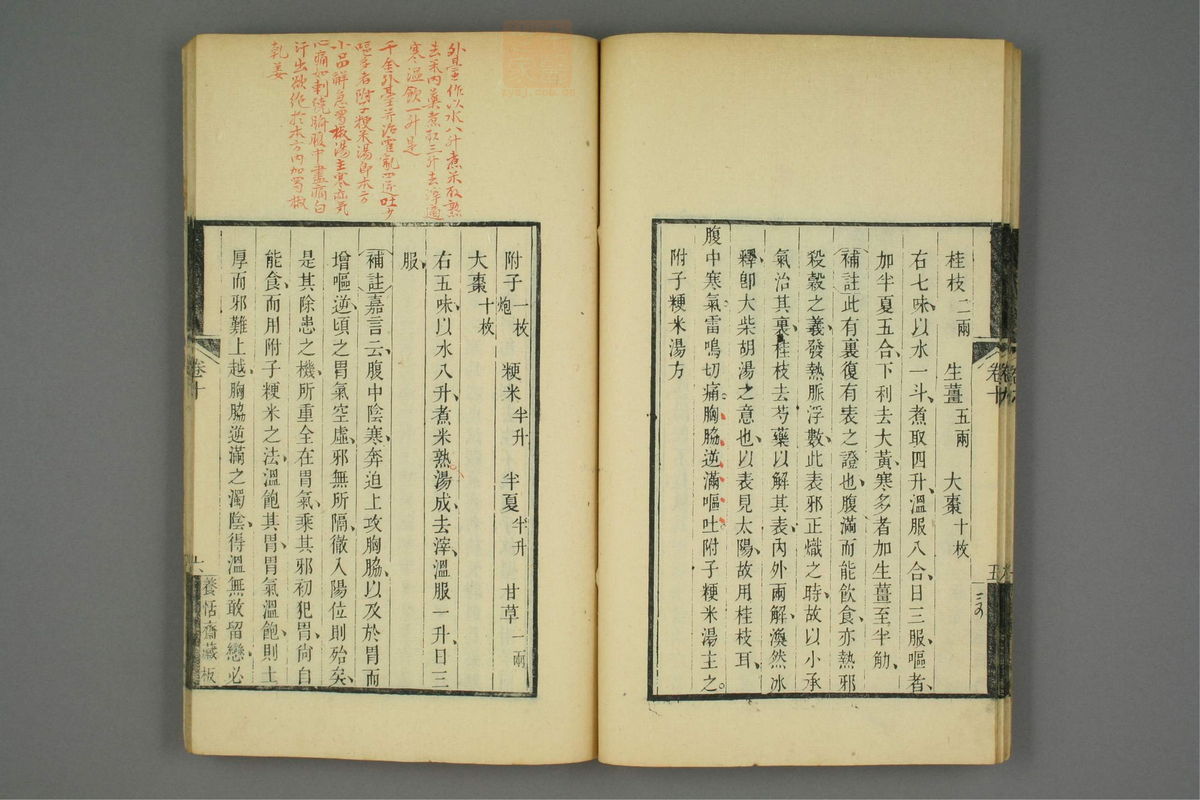 桂枝二兩 生薑五兩 大棗十枚
右七味以水一斗煮取四升溫服八合日三服嘔者
加半夏五合下利去大黃寒多者加生薑至半觔
補註此有裏復有表之證也腹滿而能飲食亦熱邪
殺穀之義發熱脈浮數此表邪正熾之時故以小承
氣治其裏桂枝去芍藥以解其表內外兩解渙然冰
釋卽大柴胡湯之意也以表見太陽故用桂枝耳
腹中寒氣雷鳴切痛胸脇逆滿嘔吐附子粳米湯主之
附子粳米湯方
卷十
五
外臺作以水八升煮米取熟
去米內藥煮取三升去滓適
寒溫飲一升是
千金外臺并治霍亂四逆吐少
嘔多者附子粳米湯卽本方
小品解急蜀椒湯主寒疝氣
心痛如刺繞臍腹中盡痛白
汗出欲絕於本方內加蜀椒
乾姜
附子一枚炮 粳米半升 半夏半升 甘草一兩
大棗十枚
右五味以水八升煮米熟湯成去滓溫服一升日三
服
補註嘉言云腹中陰寒奔迫上攻胸脇以及於胃而
增嘔逆頃之胃氣空虛邪無所隔徹入陽位則殆矣
是其除患之機所重全在胃氣乘其邪初犯胃尙自
能食而用附子粳米之法溫飽其胃胃氣溫飽則土
厚而邪難上越胸脇逆滿之濁陰得溫無敢留戀必
卷十
六
養恬齋藏板